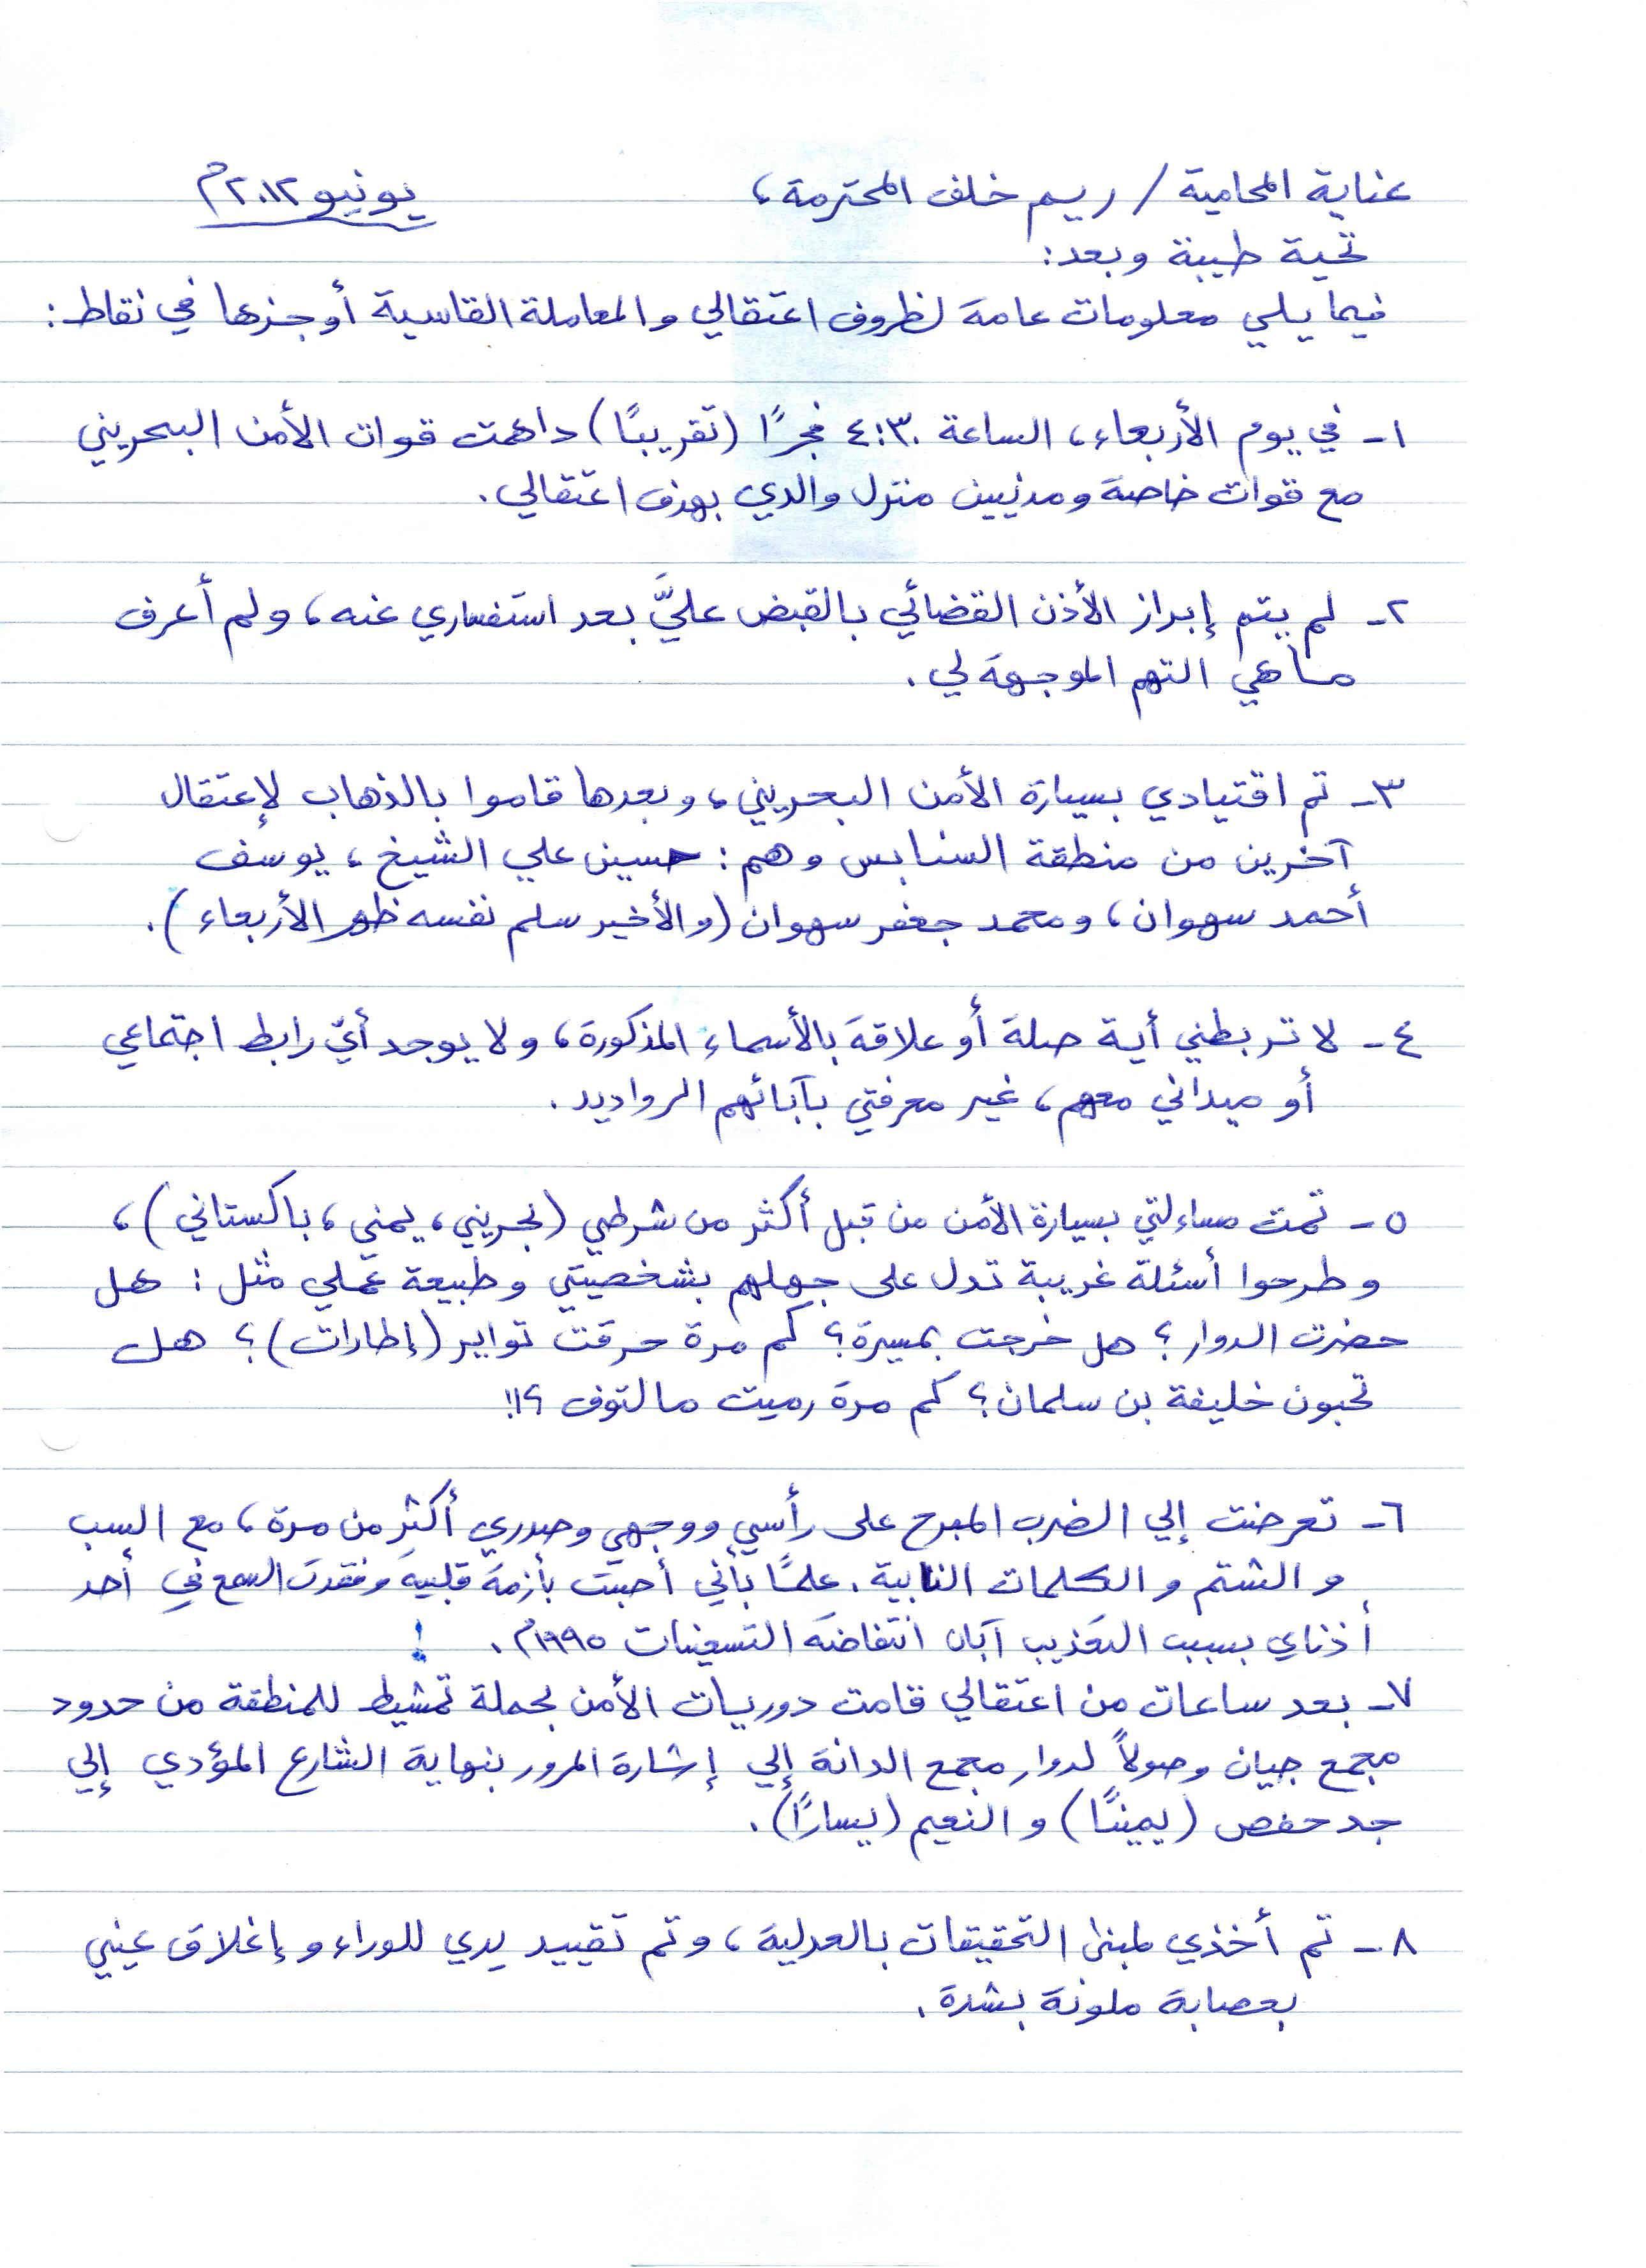 عناية المحامية / ريم خلف المحترمة، يونيو ٢٠١٢م
تحية طيبة وبعد:
فيما يلي معلومات عامة لظروف اعتقالي والمعاملة القاسية أوجزها في نقاط:
١- في يوم الأربعاء، الساعة ٤:٣٠ فجرًا (تقريبًا) داهمت قوات الأمن البحريني
مع قوات خاصة ومدنيين منزل والدي بهدف اعتقالي.
٢- لم يتم إبراز الأذن القضائي بالقبض عليَّ بعد استفساري عنه، ولم أعرف
ما هي التهم الموجهة لي.
٣- تم اقتيادي بسيارة الأمن البحريني، وبعدها قاموا بالذهاب لإعتقال
آخرين من منطقة السنابس وهم: حسين علي الشيخ، يوسف
أحمد سهوان، ومحمد جعفر سهوان (والأخير سلم نفسه ظهر الأربعاء).
٤- لا تربطني أية صلة أو علاقة بالأسماء المذكورة، ولا يوجد أيّ رابط اجتماعي
أو ميداني معهم، غير معرفتي بآبائهم الرواديد.
٥- تمت مساءلتي بسيارة الأمن من قبل أكثر من شرطي (بحريني، يمني، باكستاني)،
وطرحوا أسئلة غريبة تدل على جهلهم بشخصيتي وطبيعة عملي مثل: هل
حضرت الدوار؟ هل خرجت بمسيرة؟ كم مرة حرقت تواير (إطارات)؟ هل
تحبون خليفة بن سلمان؟ كم مرة رميت مالتوف؟!!
٦- تعرضت إلي الضرب المبرح على رأسي ووجهي وصدري أكثر من مرة، مع السب
والشتم والكلمات النابية. علمًا بأني أصبت بأزمة قلبية وفقدت السمع في أحد
أذناي بسبب التعذيب آبان انتفاضة التسعينات ١٩٩٥م. !
٧- بعد ساعات من اعتقالي قامت دوريات الأمن بحملة تمشيط للمنطقة من حدود
مجمع جيان وصولاً لدوار مجمع الدانة إلي إشارة المرور بنهاية الشارع المؤدي إلي
جدحفص (يمينًا) والنعيم (يسارًا).
٨- تم أخذي لمبنى التحقيقات بالعدلية، وتم تقييد يدي للوراء وإغلاق عيني
بعصابة ملونة بشدة.